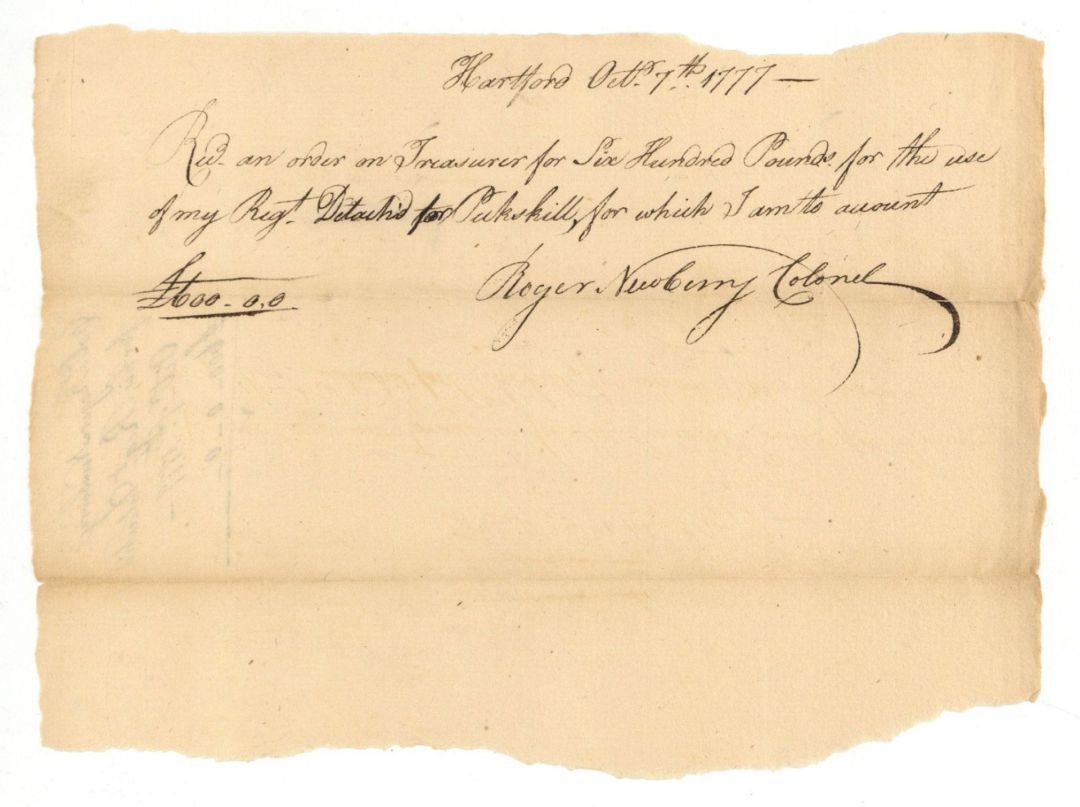 Hartford Octr. 7th. 1777 —
Recd. an order on Treasurer for Six Hundred Pounds. for the use
of my Regt. Detach'd for Peekskill, for which I am to account
£600-0,0 Roger Newberry Colonel